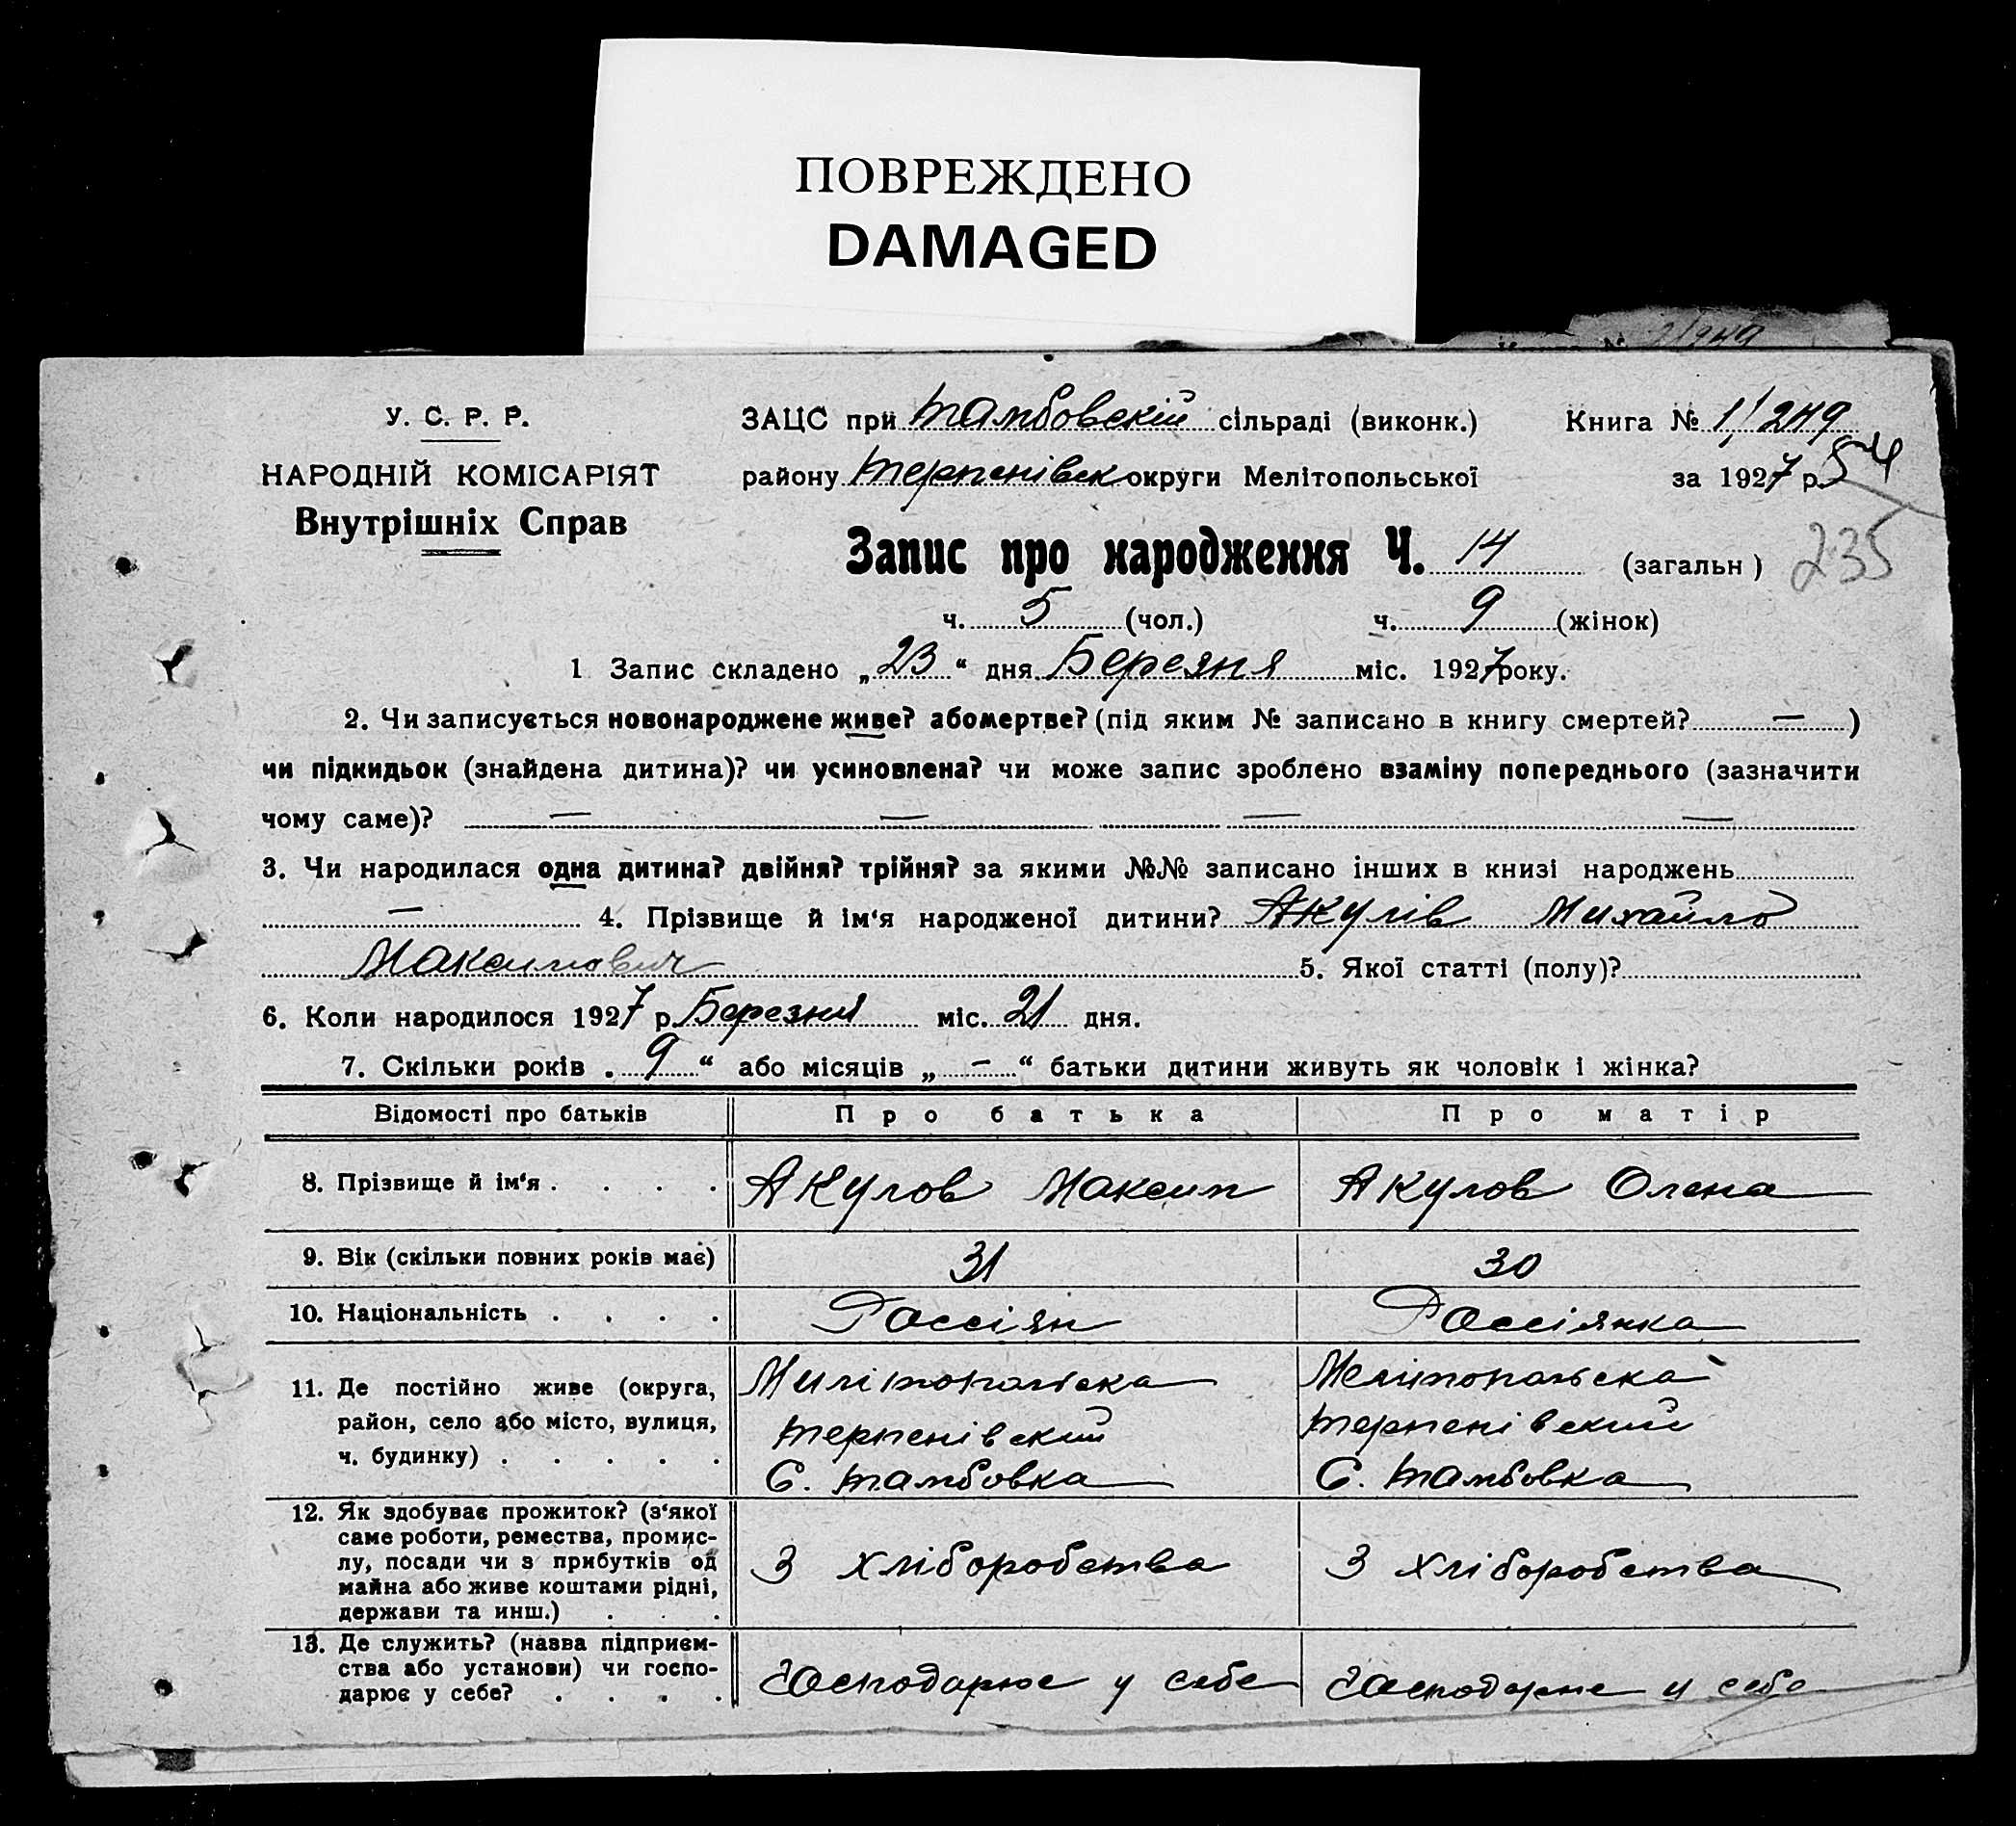 ПОВРЕЖДЕНО
DAMAGED
У. С. Р. Р.
НАРОДНІЙ КОМІСАРІЯТ
Внутрішніх Справ
ЗАЦС при Тамбовскій сільраді (виконк.)
Книга № 1/249
району Терпенівск округи Мелітопольської
за 1927 р. 54
Запис про народження Ч. 14 (загальн)
235
ч. 5 (чол.) ч. 9 (жінок)
1 Запис складено „23“ дня Березня міс. 1927 року.
2. Чи записується новонароджене живе? або мертве? (під яким № записано в книгу смертей? — )
чи підкидьок (знайдена дитина)? чи усиновлена? чи може запис зроблено взаміну попереднього (зазначити
чому саме)? — — — —
3. Чи народилася одна дитина? двійня? трійня? за якими №№ записано інших в книзі народжень
— 4. Прізвище й ім‘я народженої дитини? Акулів Михайло
Максимович 5. Якої статті (полу)?
6. Коли народилося 1927 р. Березня міс. 21 дня.
7. Скільки років „ 9 “ або місяців „ - “ батьки дитини живуть як чоловік і жінка?
Відомості про батьків Про батька Про матір
8. Прізвище й ім‘я . . . . Акулов Максим Акулов Олена
9. Вік (скільки повних років має) 31 30
10. Національність . . . . Россіян Россіянка
11. Де постійно живе (округа, Милітопольска Мелітопольска
район, село або місто, вулиця, Терпенівский Терпенівский
ч. будинку) . . . . . С. Тамбовка С. Тамбовка
12. Як здобуває прожиток? (з‘якої
саме роботи, ремества, промис-
лу, посади чи з прибутків од З хліборобства З хліборобства
майна або живе коштами рідні,
держави та инш.) . . .
13. Де служить? (назва підприєм-
ства або установи) чи госпо-
дарює у себе? . . . . Господарює у себе Господарює у себе